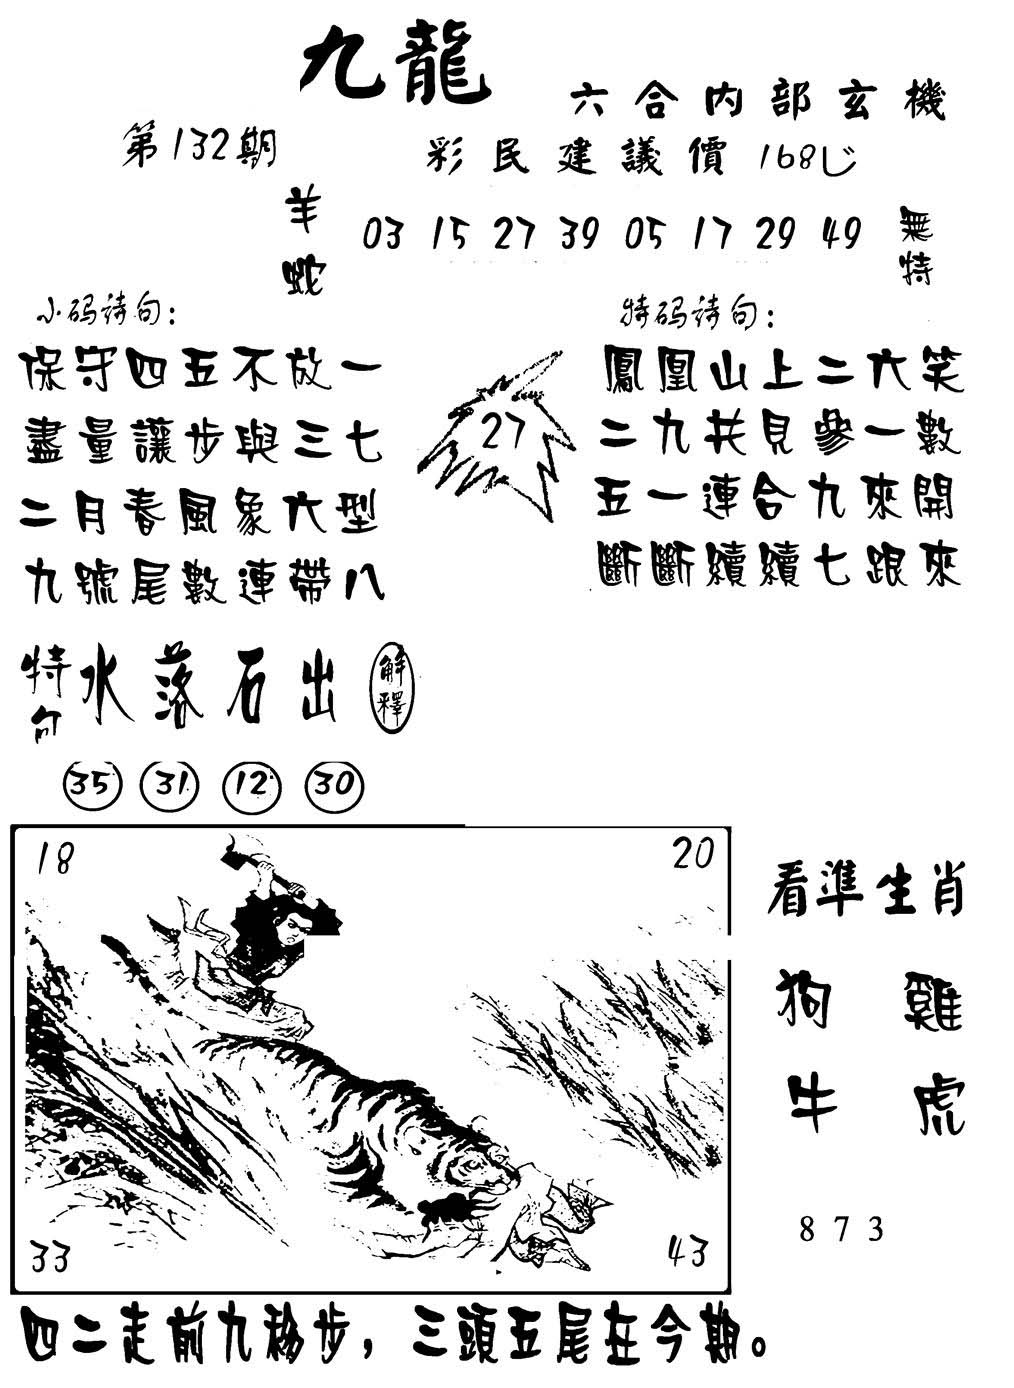 九龍
六合内部玄機
第132期
彩民建議價168
羊
蛇
03 15 27 39 05 17 29 49
無特
小码诗句：
保守四五不放一
盡量讓步與三七
二月春風象六型
九號尾數連帶八
27
特码诗句：
鳳凰山上二六笑
二九共見參一數
五一連合九來開
斷斷續續七跟來
特
水落石出
解釋
35 31 12 30
18
20
33
43
看準生肖
狗 雞
牛 虎
873
四二走前九移步，三頭五尾在今期。